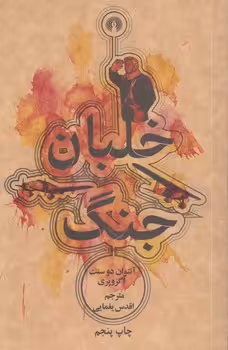 خلبان
جنگ
آنتوان دو سنت
اگزوپری
مترجم
اقدس یغمایی
چاپ پنجم